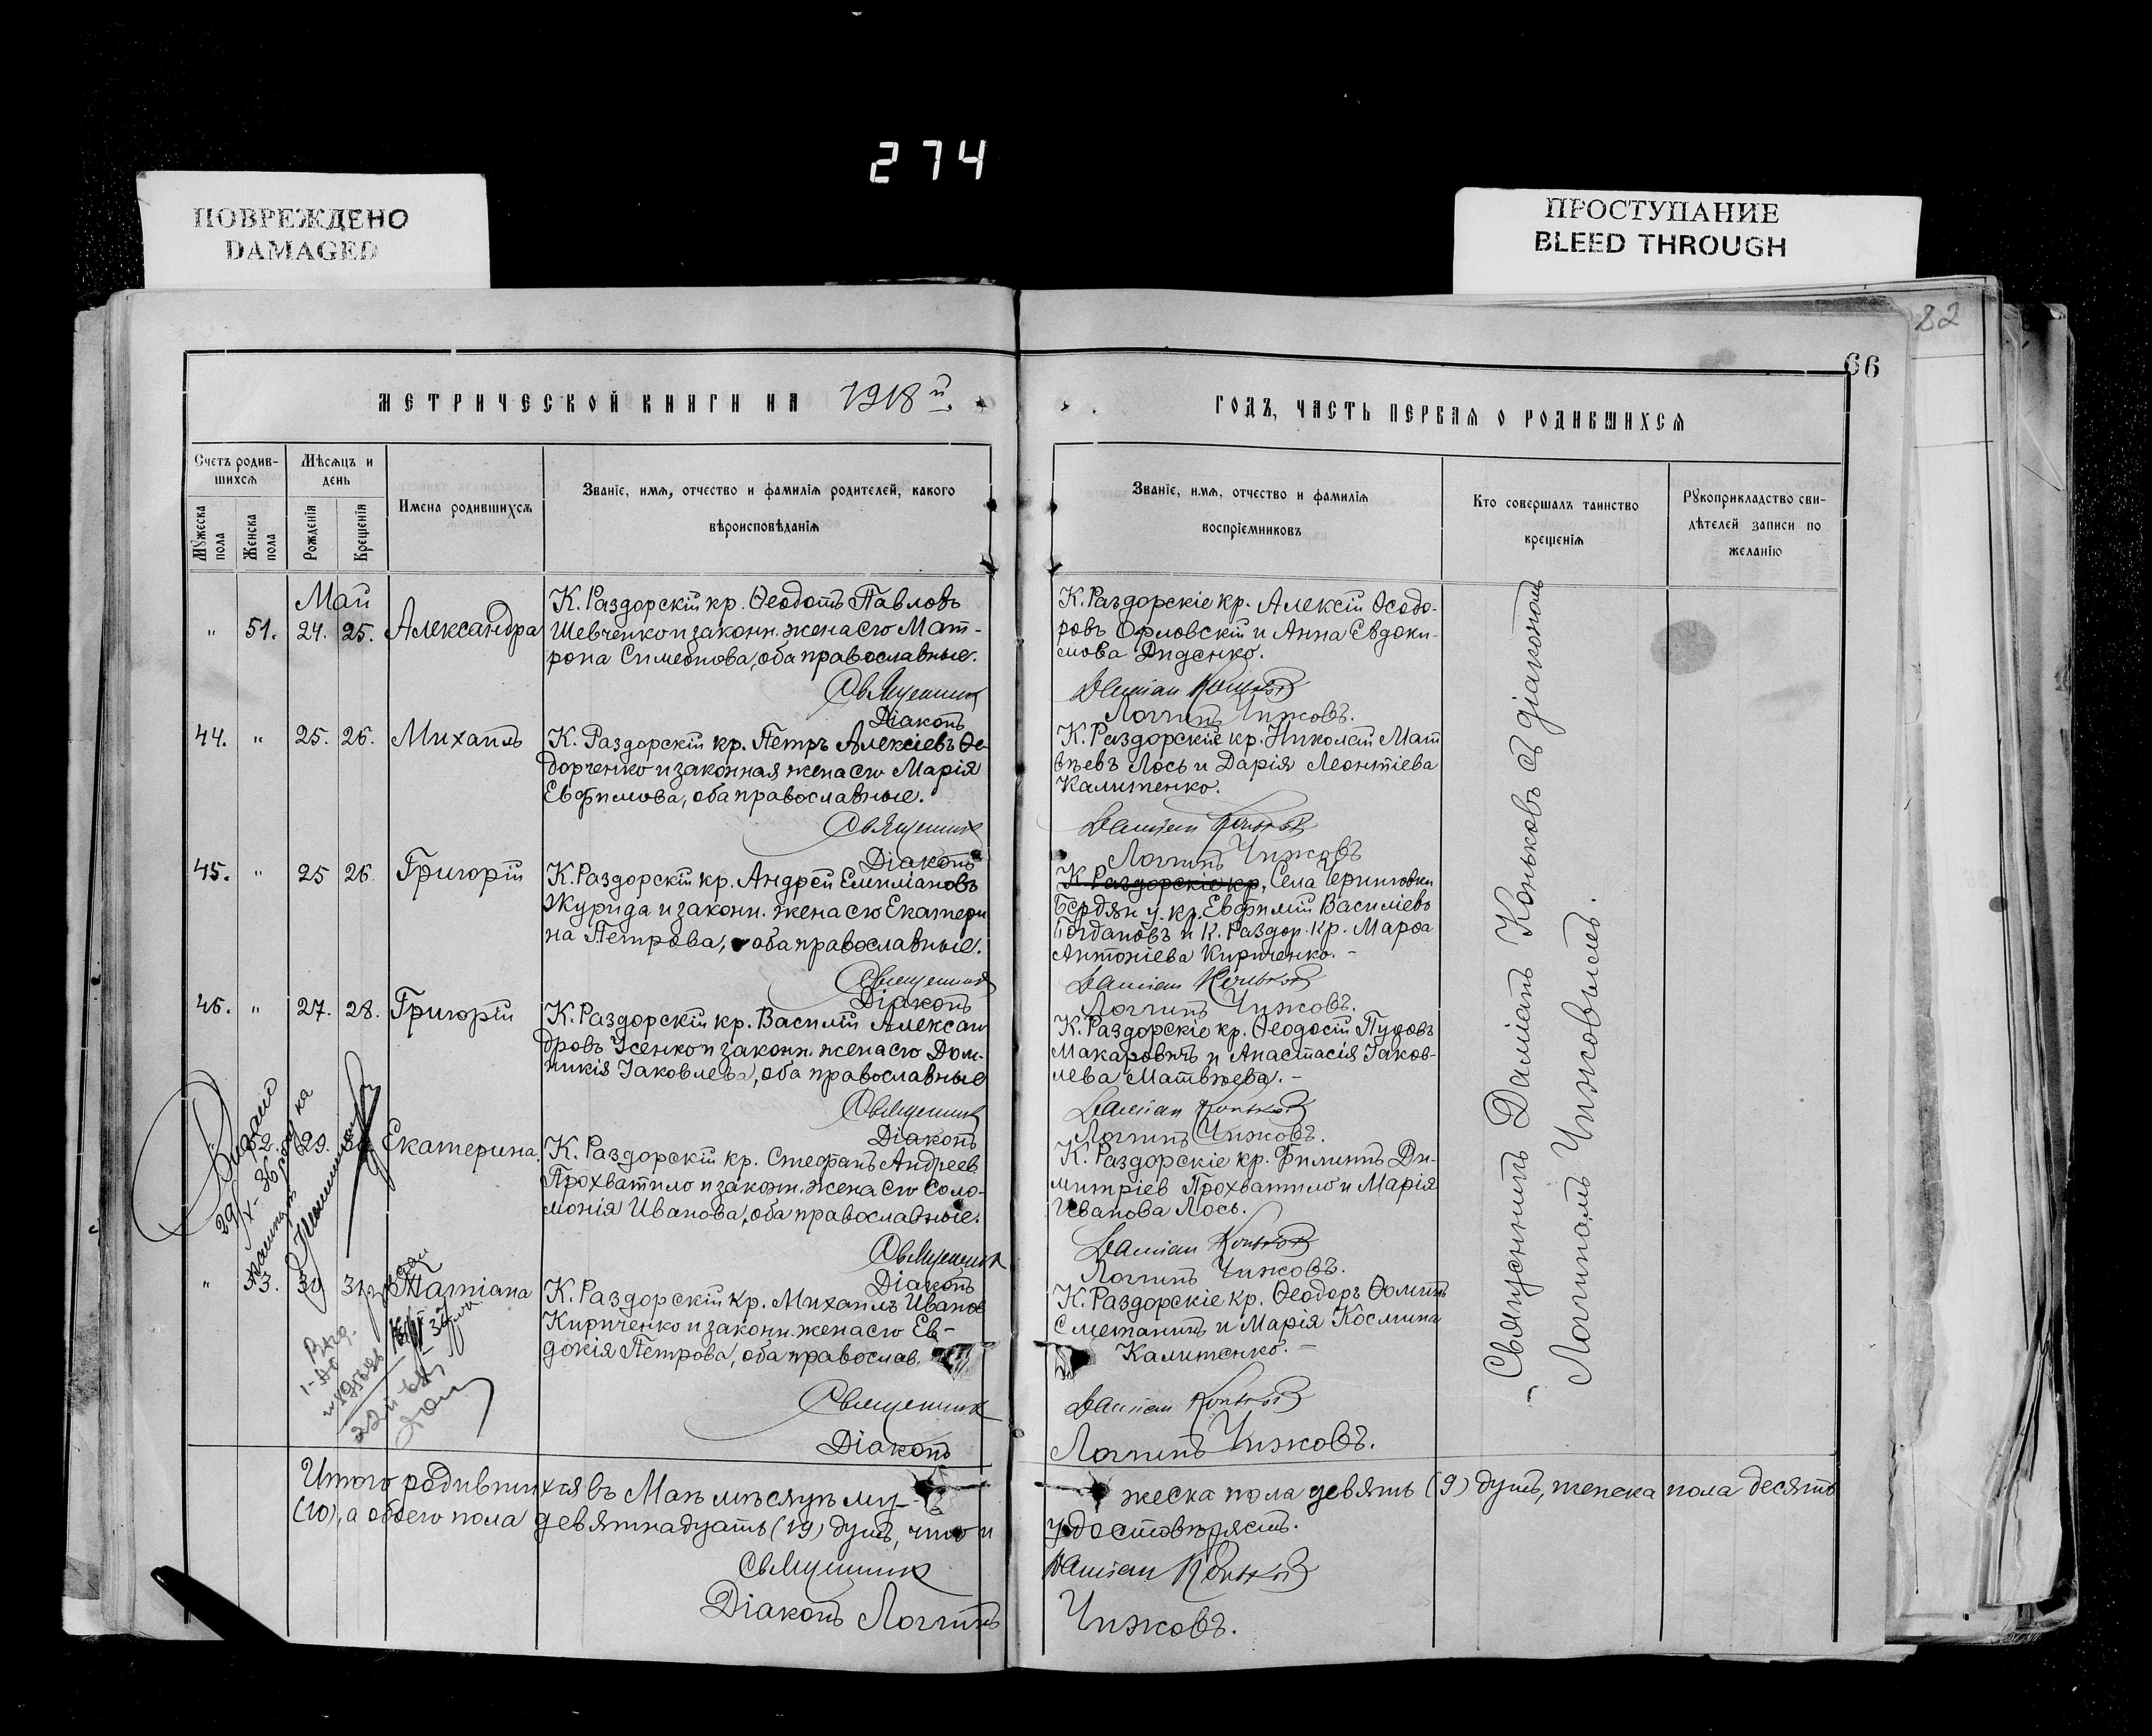 274
ПОВРЕЖДЕНО
DAMAGED
ПРОСТУПАНИЕ
BLEED THROUGH
82
66
МЕТРИЧЕСКОЙ КНИГИ НА 1918й.
ГОДЪ, ЧАСТЬ ПЕРВАѦ О РОДИВШИХСѦ
Счетъ родив-
шихсѧ
Мѣсѧцъ и
день
Мꙋжеска
пола
Женска
пола
Рожденіѧ
Крещеніѧ
Имена родившихсѧ
Званіе, имѧ, отчество и фамиліѧ родителей, какого
вѣроисповѣданіѧ
Званіе, имѧ, отчество и фамиліѧ
воспріемниковъ
Кто совершалъ таинство
крещеніѧ
Рꙋкоприкладство сви-
дѣтелей записи по
желанію
Май
" 51. 24. 25. Александра
К. Раздорскій кр. Ѳеодотъ Павловъ
Шевченко и законн. жена его Мат-
рона Симеонова, оба православные.
Священникъ
Діаконъ
К. Раздорскіе кр. Алексій Ѳеодо-
ровъ Орловскій и Анна Евдоки-
мова Диденко.
Даміан Коньков
Логгинъ Чижовъ.
44. " 25. 26. Михаилъ
К. Раздорскій кр. Петръ Алексіевъ Ѳе-
дорченко и законная жена его Марія
Евфимова, оба православные.
Священник
Діаконъ
К. Раздорскіе кр. Николай Мат
вѣевъ Лось и Дарія Леонтіева
Калитенко.
Даміан Коньков
Логгинъ Чижовъ
45. " 25 26. Григорій
К. Раздорскій кр. Андрей Емиліановъ
Журида и законн. жена его Екатери
на Петрова, оба православные.
Священник
Діаконъ
К Раздорскіе кр, Села Черниговки
Бердян у. кр. Евфимій Василіевъ
Богдановъ и К. Раздор. кр. Марѳа
Антоніева Кириченко. -
Даміан Коньков
Логгинъ Чижовъ.
46. " 27. 28. Григорій
К. Раздорскій кр. Василій Алексан
дровъ Усенко и законн. жена его Дом-
никія Іаковлева, оба православные
Священник
Діаконъ
К. Раздорскіе кр. Ѳеодосій Пудовъ
Макаровъ и Анастасія Іаков-
лева Матвѣева. -
Даміан Коньков
Логгинъ Чижовъ.
" 52 29. Екатерина.
К. Раздорскій кр. Стефанъ Андреев
Прохватило и законн. жена его Соло-
монія Иванова, оба православные.
Священник
Діаконъ
К. Раздорскіе кр. Филиппъ Ди-
митріев Прохватило и Марія
Иванова Лось.
Даміан Коньков
Логгинъ Чижовъ.
" 53. 30 31. Татіана
К. Раздорскій кр. Михаилъ Иванов
Кириченко и законн. жена его Ев-
докія Петрова, оба православ.
Священник
Діаконъ
К. Раздорскіе кр. Ѳеодоръ Ѳоминъ
Сметанинъ и Марія Космина
Калитенко. -
Даміан Коньков
Логгинъ Чижовъ.
Священникъ Даміанъ Коньковъ съ діакономъ
Логгиномъ Чижовымъ.
Итого родившихся въ Маѣ мѣсяцѣ му-
жеска пола девять (9) душъ, женска пола десять
(10), а обоего пола девятнадцать (19) душъ, что и
удостовѣряетъ.
Священник
Даміан Коньков
Діаконъ Логгинъ
Чижовъ.